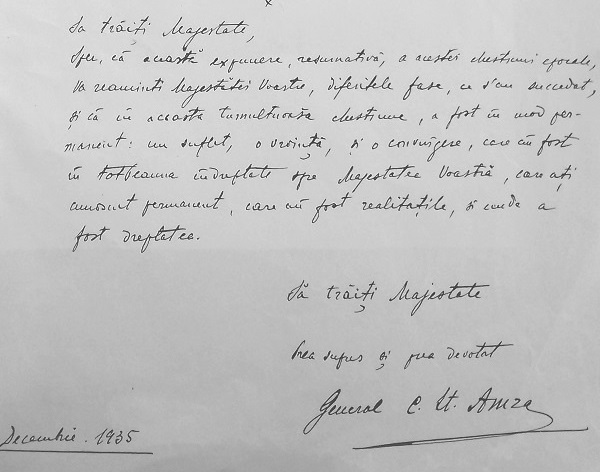 x
Să trăiți Majestate,
Sper, că această expunere, resumativă, a acestei chestiuni epocale,
Va reaminti Majestăței Voastre, diferitele fase, ce s'au succedat,
și că în aceasta tumultuoasă chestiune, a fost în mod per-
manent: un suflet, o voință, și o convingere, care au fost
în totdeauna îndreptate spre Majestatea Voastră, care ați
cunoscut permanent, care au fost realitațile, și unde a
fost dreptatea.
Să trăiți Majestate
Prea supus și prea devotat
General C. Șt. Amza
Decembrie. 1935